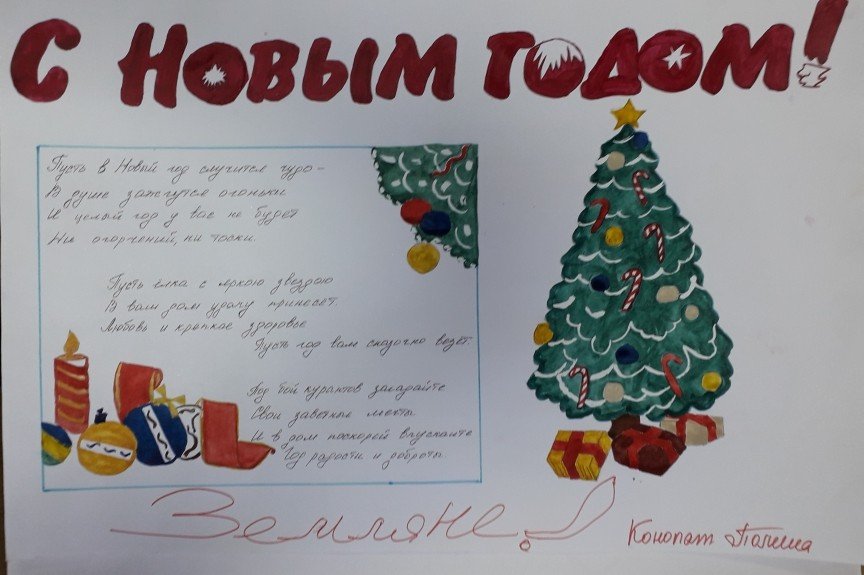 С НОВЫМ ГОДОМ!
Пусть в Новый год случится чудо –
В душе зажгутся огоньки
И целый год у вас не будет
Ни огорчений, ни тоски.
Пусть ёлка с яркою звездою
В ваш дом удачу принесёт.
Любовь и крепкое здоровье
Пусть год вам сказочно везёт.
Под бой курантов загадайте
Свои заветные мечты
И в дом поскорей впускайте
Год радости и доброты.
Земляне!
Конопат Полина